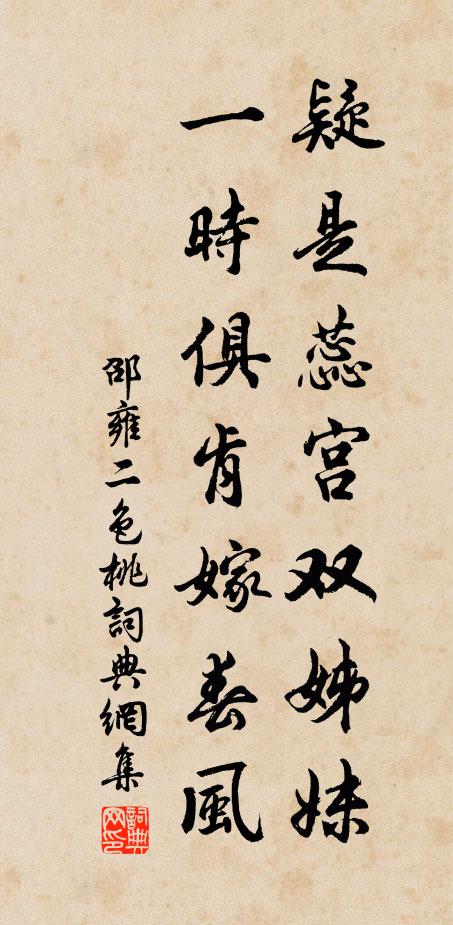 疑是蕊宫双姊妹
一時俱肯嫁春風
邵雍二色桃詞典網集
詞典网印